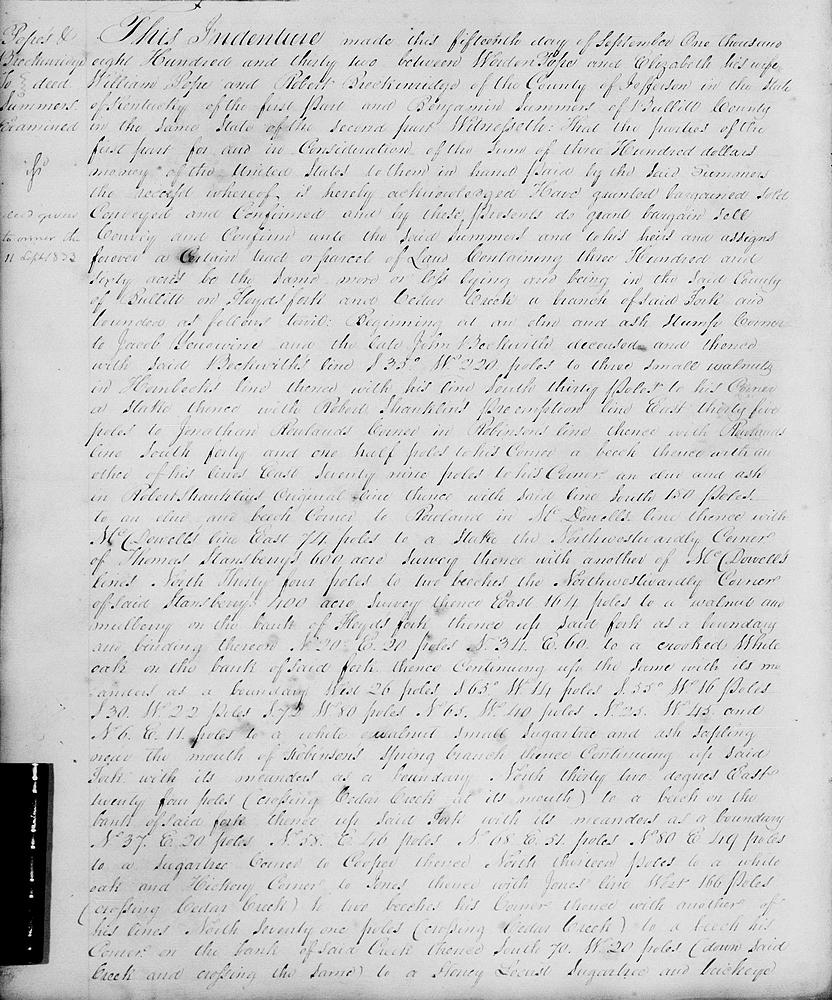 Pope's &
Breckinridge
To deed
Summers
Examined
deed given
to owner the
11 Sept 1833
This Indenture made this fifteenth day of September One thousand
eight Hundred and thirty two between Worden Pope and Elizabeth his wife
William Pope and Robert Breckinridge of the County of Jefferson in the State
of Kentucky of the first part and Benjamin Summers of Bullitt County
in the same State of the second part Witnesseth: That the parties of the
first part for and in Consideration of the sum of three Hundred dollars
money of the United States to them in hand paid by the said Summers
the receipt whereof is hereby acknowledged Have granted bargained sold
Conveyed and Confirmed and by these presents do grant bargain sell
Convey and Confirm unto the said Summers and to his heirs and assigns
forever a Certain tract or parcel of Land Containing three Hundred and
sixty acres be the same more or less lying and being in the said County
of Bullitt on Floyds fork and Cedar Creek a branch of said Fork and
bounded as follows towit: Beginning at an elm and ash stump Corner
to Jacob and the late John Beckwith deceased and thence
with said Beckwith's line S 35° W. 220 poles to three small walnuts
in line thence with his line South thirty poles to his Corner
a stake thence with Robert Shanklin's Preemption line East thirty five
poles to Jonathan Rowlands Corner in Robinsons line thence with Rowlands
line South forty and one half poles to his Corner a beech thence with an
other of his lines East seventy nine poles to his Corner an elm and ash
in Robert Shanklins Original line thence with said line South 150 poles
to an elm and beech Corner to Rowland in McDowells line thence with
McDowells line East 74 poles to a stake the Northwestwardly Corner
of Thomas Stansberry's 600 acre survey thence with another of McDowells
lines North Thirty four poles to two beeches the Northwestwardly Corner
of said Stansberry's 400 acre survey thence East 164 poles to a walnut and
mulberry on the bank of Floyds fork thence up said fork as a boundary
and binding thereon N. 20° E. 20 poles N. 34. E. 60. to a crooked White
oak on the bank of said fork thence Continuing up the same with its me
anders as a boundary West 26 poles S 65° W. 14 poles S. 55° W. 16 poles
S 30. W. 22 poles S. 72 W. 80 poles N. 65. W. 40 poles N. 25. W. 45 and
N. 6. E. 11. poles to a white walnut small sugartree and ash sapling
near the mouth of Robinsons spring branch thence Continuing up said
Fork with its meanders as a boundary North thirty two degrees East
twenty four poles (crossing Cedar Creek at its mouth) to a beech on the
bank of said fork thence up said Fork with its meanders as a boundary
N. 37. E. 20 poles N. 58. E. 46 poles N. 68 E. 51 poles N. 80 E 49 poles
to a sugartree Corner to Cooper thence North thirteen poles to a white
oak and Hickory Corner to Jones thence with Jones line West 166 poles
(crossing Cedar Creek) to two beeches his Corner thence with another of
his lines North seventy one poles (crossing Cedar Creek) to a beech his
Corner on the bank of said Creek thence South 70. W. 20 poles (down said
Creek and crossing the same) to a Honey Locust Sugartree and buckeye